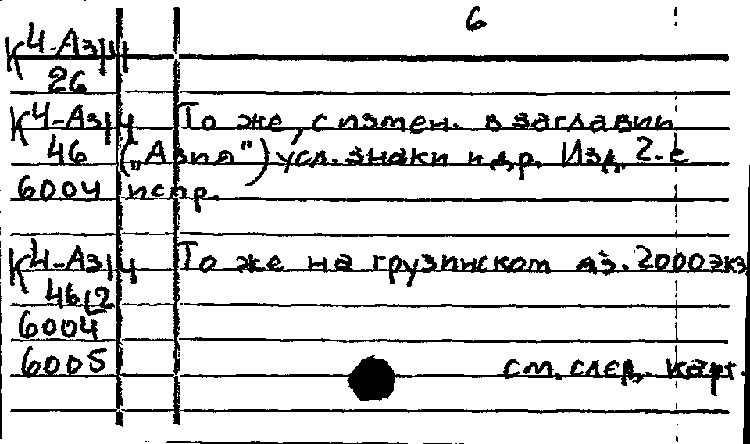 6
К4-Аз/4
26
К4-Аз/4 То же, с измен. в заглавии
46 („Азия") усл. знаки и др. Изд. 2-е
6004 испр.
К4-Аз/4 То же на грузинском яз. 2000 экз.
46(2
6004
6005
см. след. карт.